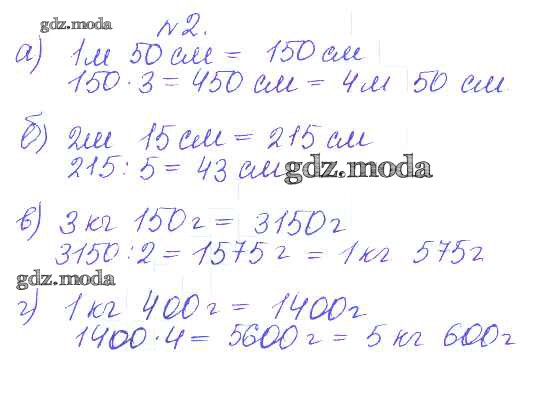 gdz.moda
№2.
а) 1м 50 см = 150 см
150 · 3 = 450 см = 4м 50 см
б) 2м 15 см = 215 см
215 : 5 = 43 см
gdz.moda
в) 3 кг 150 г = 3150 г
3150 : 2 = 1575 г = 1 кг 575 г
gdz.moda
г) 1 кг 400 г = 1400 г
1400 · 4 = 5600 г = 5 кг 600 г